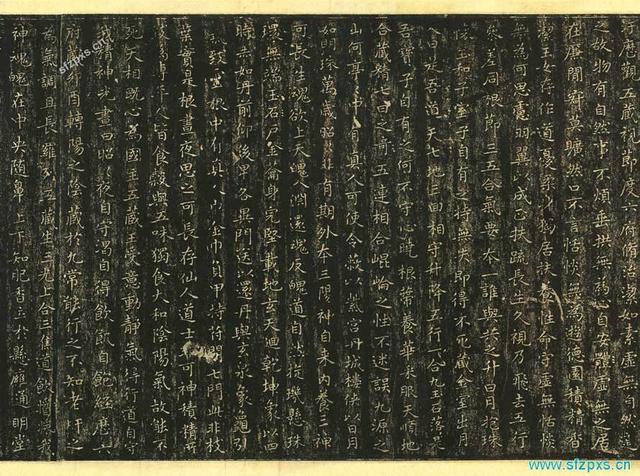 歷觀五藏視節度六府修治潔如素虛無自然道
之故物有自然事不煩垂拱無為心自安體虛無之居
在廉間寂莫曠然口不言恬惔無為遊德園積精香
潔玉女存作道憂柔身獨居扶養性命守虛無恬惔
無為何思慮羽翼以成正扶疏長生久視乃飛去五行
參差同根節三五合氣要本一誰與共之升日月抱珠
懷玉和子室子自有之持無失即得不死藏金室出月
入日是吾道天七地三回相守升降五行一合九玉石落落是
吾寶子自有之何不守心曉根蔕養華采服天順地
合藏精七日之奇五連相合崐崘之性不迷誤九源之
山何亭亭中有真人可使令蔽以紫宮丹城樓俠以日月
如明珠萬歲昭昭非有期外本三陽神自來內養三神
可長生魂欲上天魄入淵還魂反魄道自然旋璣懸珠
環無端玉石戶金籥身完堅載地玄天迴乾坤象以四
時赤如丹前仰後卑各異門送以還丹與玄泉象龜引
氣致靈根中有真人巾金巾負甲持符開七門此非枝
葉實是根晝夜思之可長存仙人道士非可神積精所
致為專年人皆食穀與五味獨食大和陰陽氣故能不
死天相既心為國主五藏王受意動靜氣得行道自守
我精神光晝日昭昭夜自守渴自得飲飢自飽經歷六
府藏卯酉轉陽之陰藏於九常能行之不知老肝之
為氣調且長羅列五藏生三光上合三焦道飲醬漿我
神魂魄在中央隨鼻上下知肥香立於懸膺通明堂
sfzpxs.cn
www.sfzpxs.cn